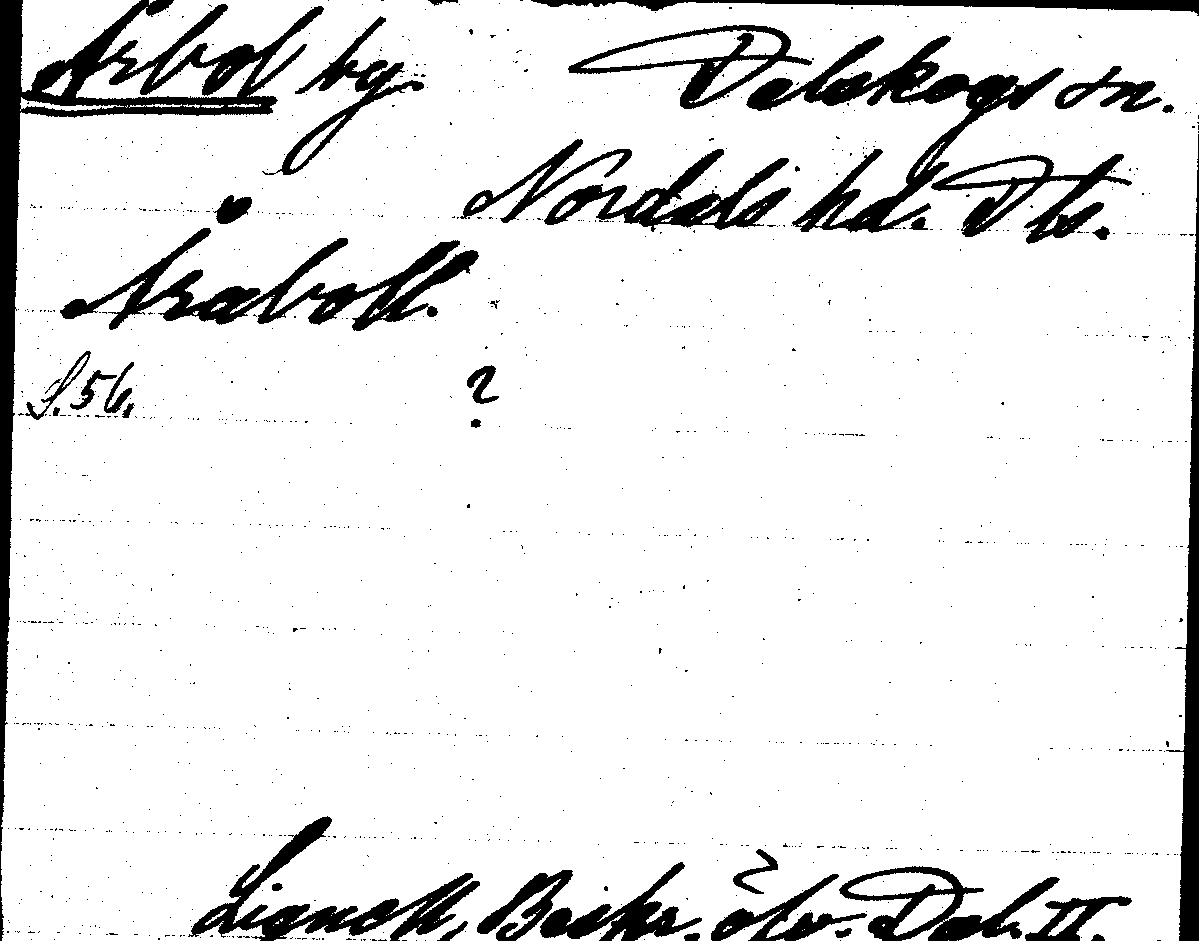 Årbol by. Dalskogs sn.
Nordals hd. Dls.
Åraboll.
S. 56. ?
Lignell, Beskr. öfv. Dal. II.